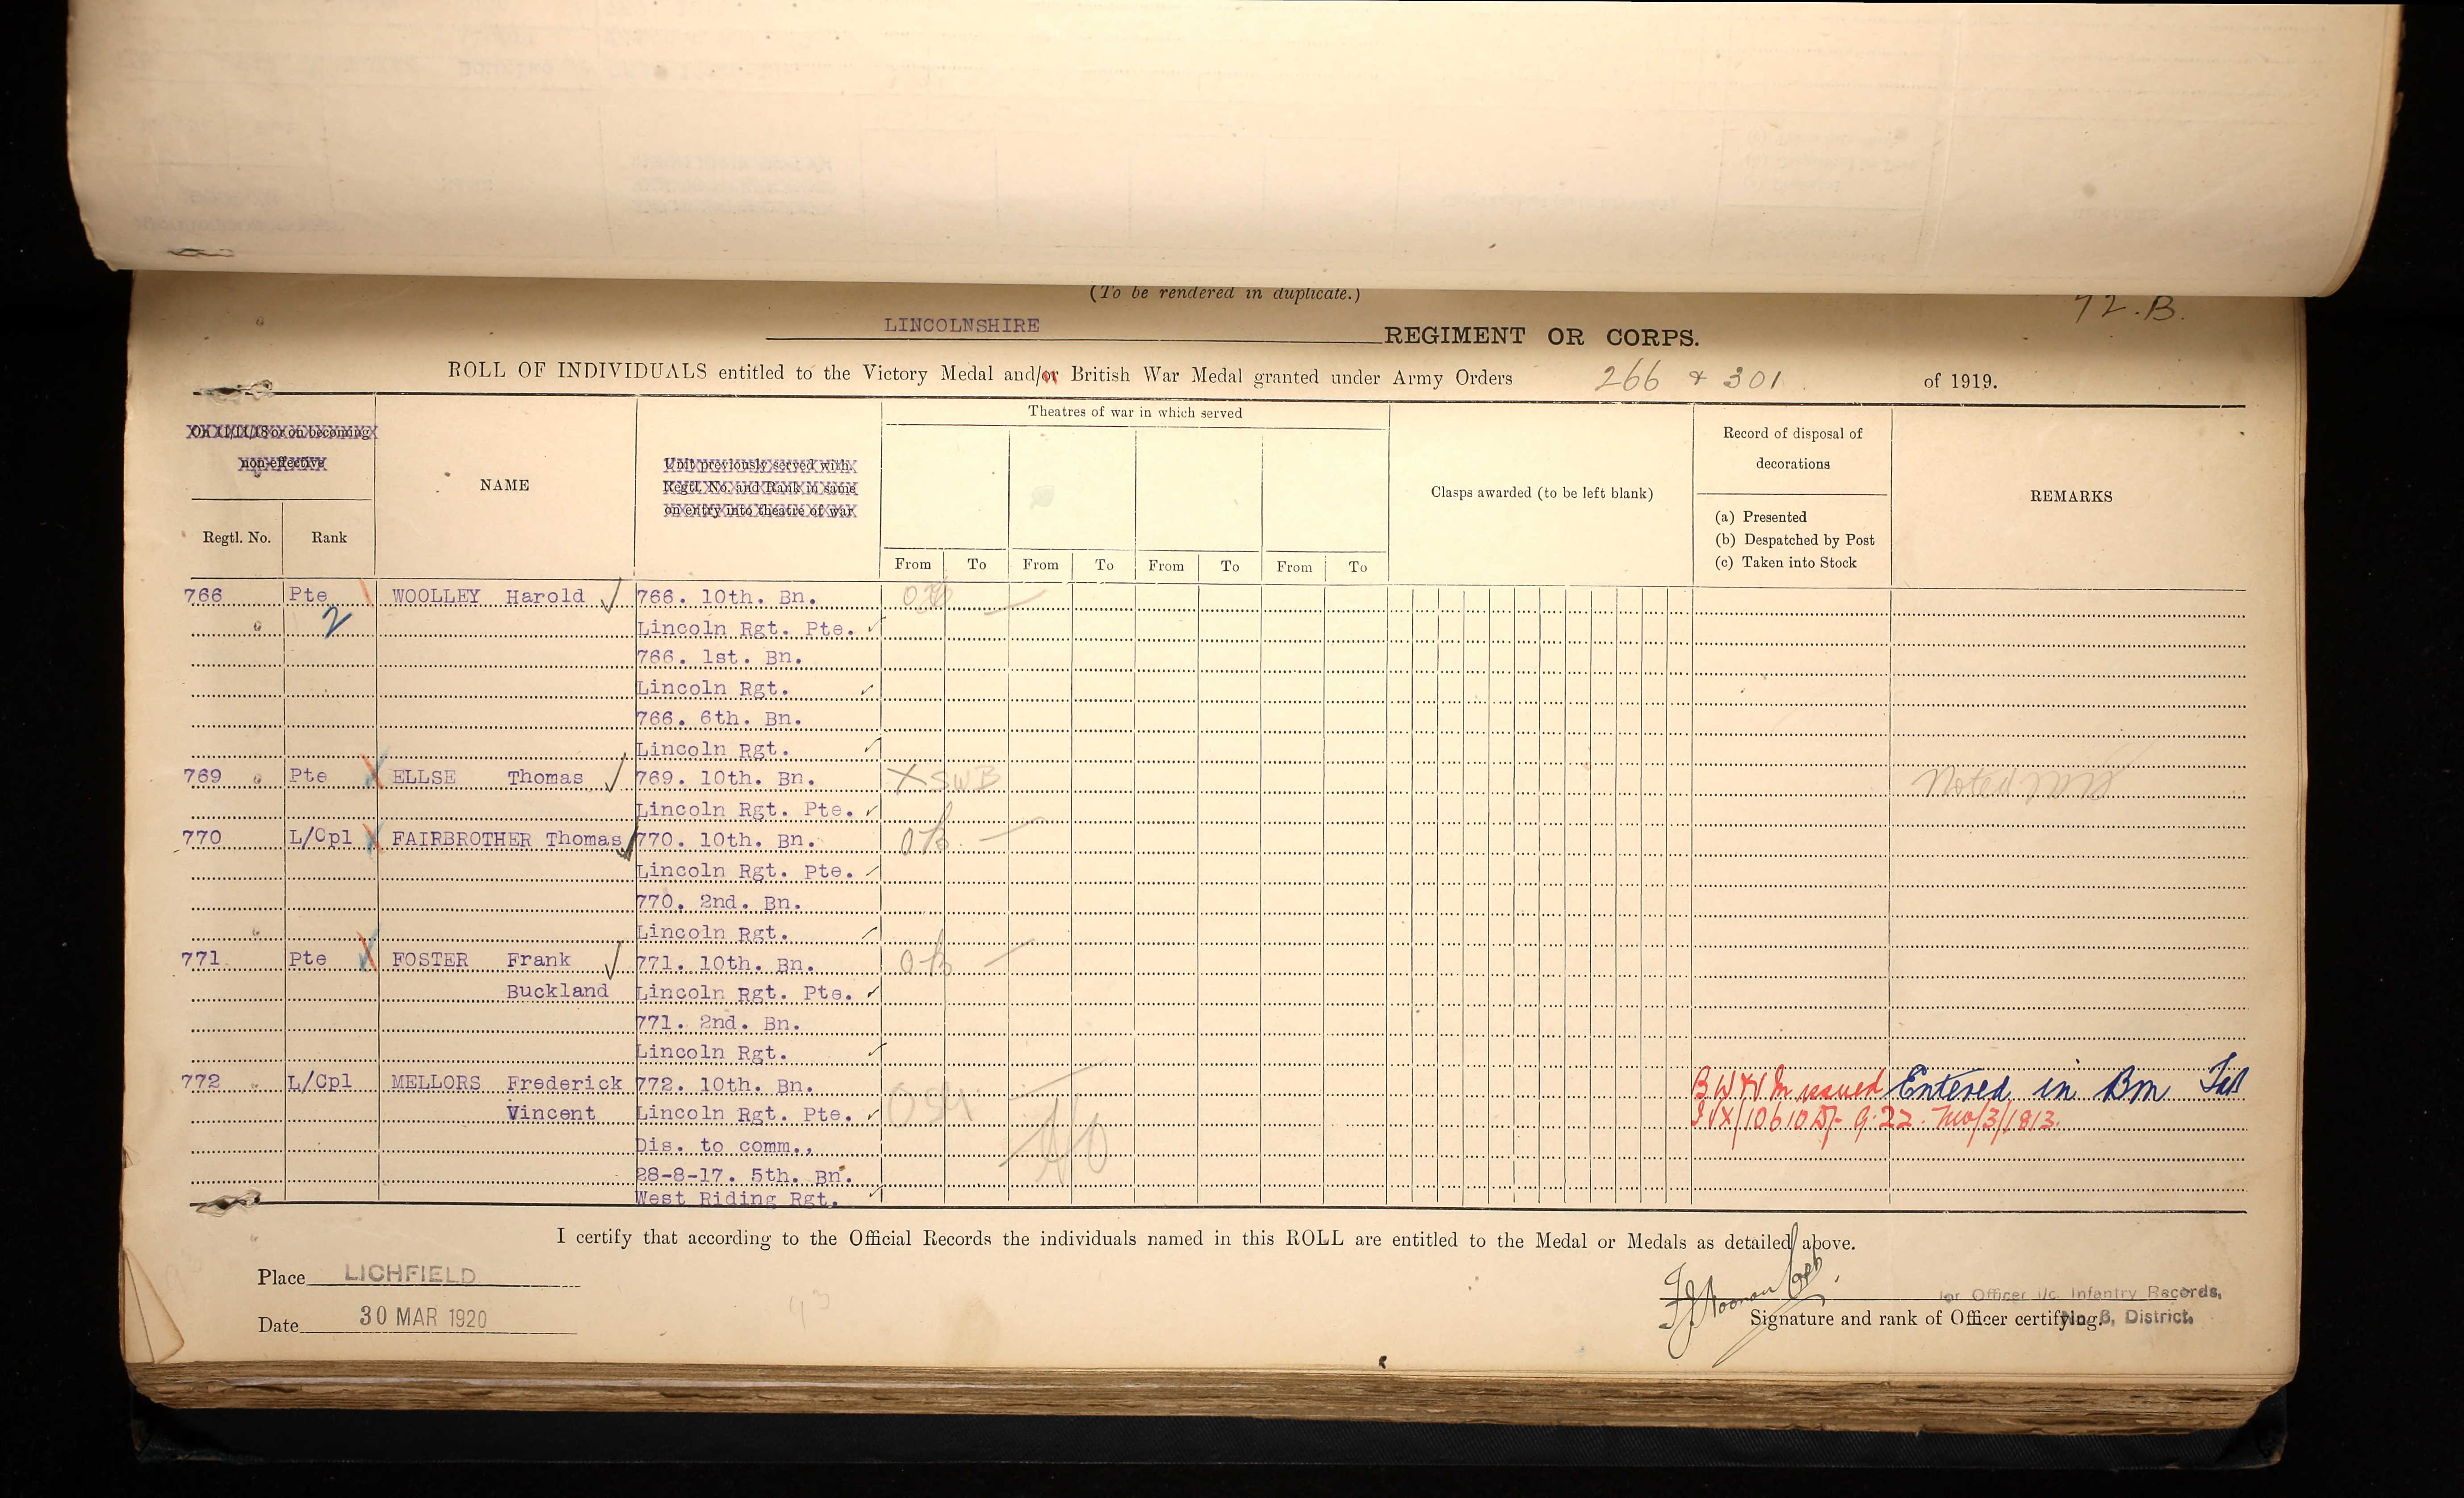 (To be rendered in duplicate.)
72.B.
LINCOLNSHIRE REGIMENT OR CORPS.
ROLL OF INDIVIDUALS entitled to the Victory Medal and/or British War Medal granted under Army Orders 266 & 301 of 1919.
On 11/11/18 or on becoming non-effective
Regtl. No.
Rank
NAME
Unit previously served with.
Regtl. No. and Rank in same
on entry into theatre of war
Theatres of war in which served
From To From To From To From To
Clasps awarded (to be left blank)
Record of disposal of
decorations
(a) Presented
(b) Despatched by Post
(c) Taken into Stock
REMARKS
766 Pte WOOLLEY Harold 766. 10th. Bn.
2 Lincoln Rgt. Pte.
766. 1st. Bn.
Lincoln Rgt.
766. 6th. Bn.
Lincoln Rgt.
769 Pte ELLSE Thomas 769. 10th. Bn. X SWB Noted
Lincoln Rgt. Pte.
770 L/Cpl FAIRBROTHER Thomas 770. 10th. Bn. ok
Lincoln Rgt. Pte.
770. 2nd. Bn.
Lincoln Rgt.
771 Pte FOSTER Frank 771. 10th. Bn. ok
Buckland Lincoln Rgt. Pte.
771. 2nd. Bn.
Lincoln Rgt.
772 L/Cpl MELLORS Frederick 772. 10th. Bn. BW & V M issued Entered in Bm
Vincent Lincoln Rgt. Pte. 9.22.
Dis. to comm.,
28-8-17. 5th. Bn.
West Riding Rgt.
I certify that according to the Official Records the individuals named in this ROLL are entitled to the Medal or Medals as detailed above.
Place LICHFIELD
for Officer i/c. Infantry Records,
Date 30 MAR 1920
Signature and rank of Officer certifying.
No. 6, District.